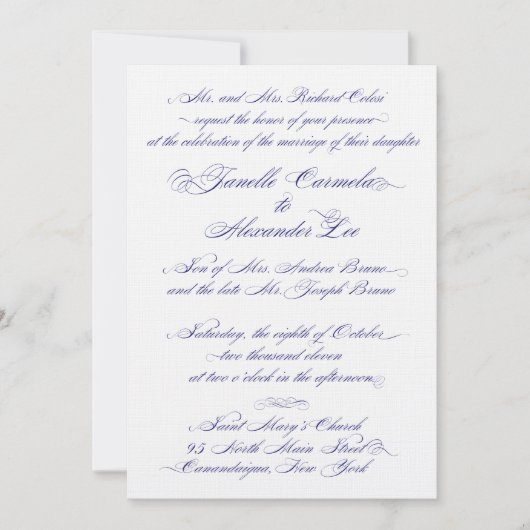 Mr. and Mrs. Richard Colosi
request the honor of your presence
at the celebration of the marriage of their daughter
Janelle Carmela
to
Alexander Lee
Son of Mrs. Andrea Bruno
and the late Mr. Joseph Bruno
Saturday, the eighth of October
two thousand eleven
at two o'clock in the afternoon
Saint Mary's Church
95 North Main Street
Canandaigua, New York